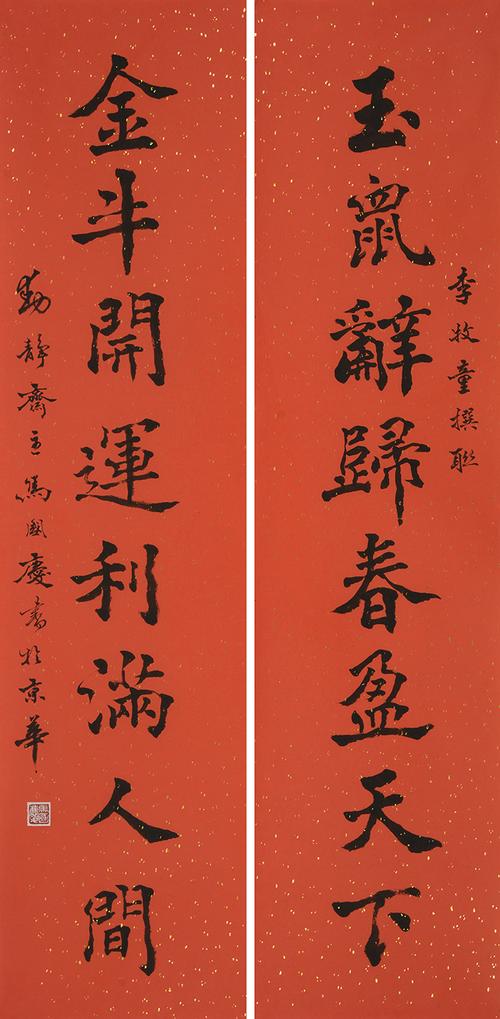 玉鼠辭歸春盈天下
李牧童撰聯
金斗開運利滿人間
靜齋主馮國慶書於京華